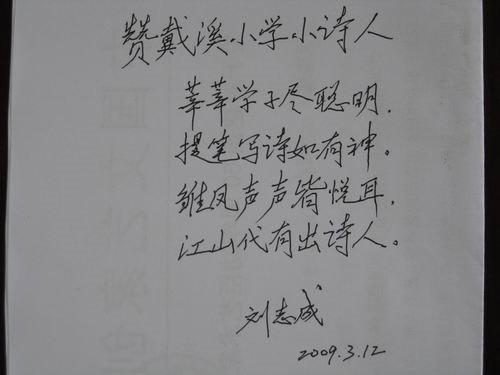 赞戴溪小学小诗人
莘莘学子尽聪明，
提笔写诗如有神。
雏凤声声皆悦耳，
江山代有出诗人。
刘志成
2009.3.12